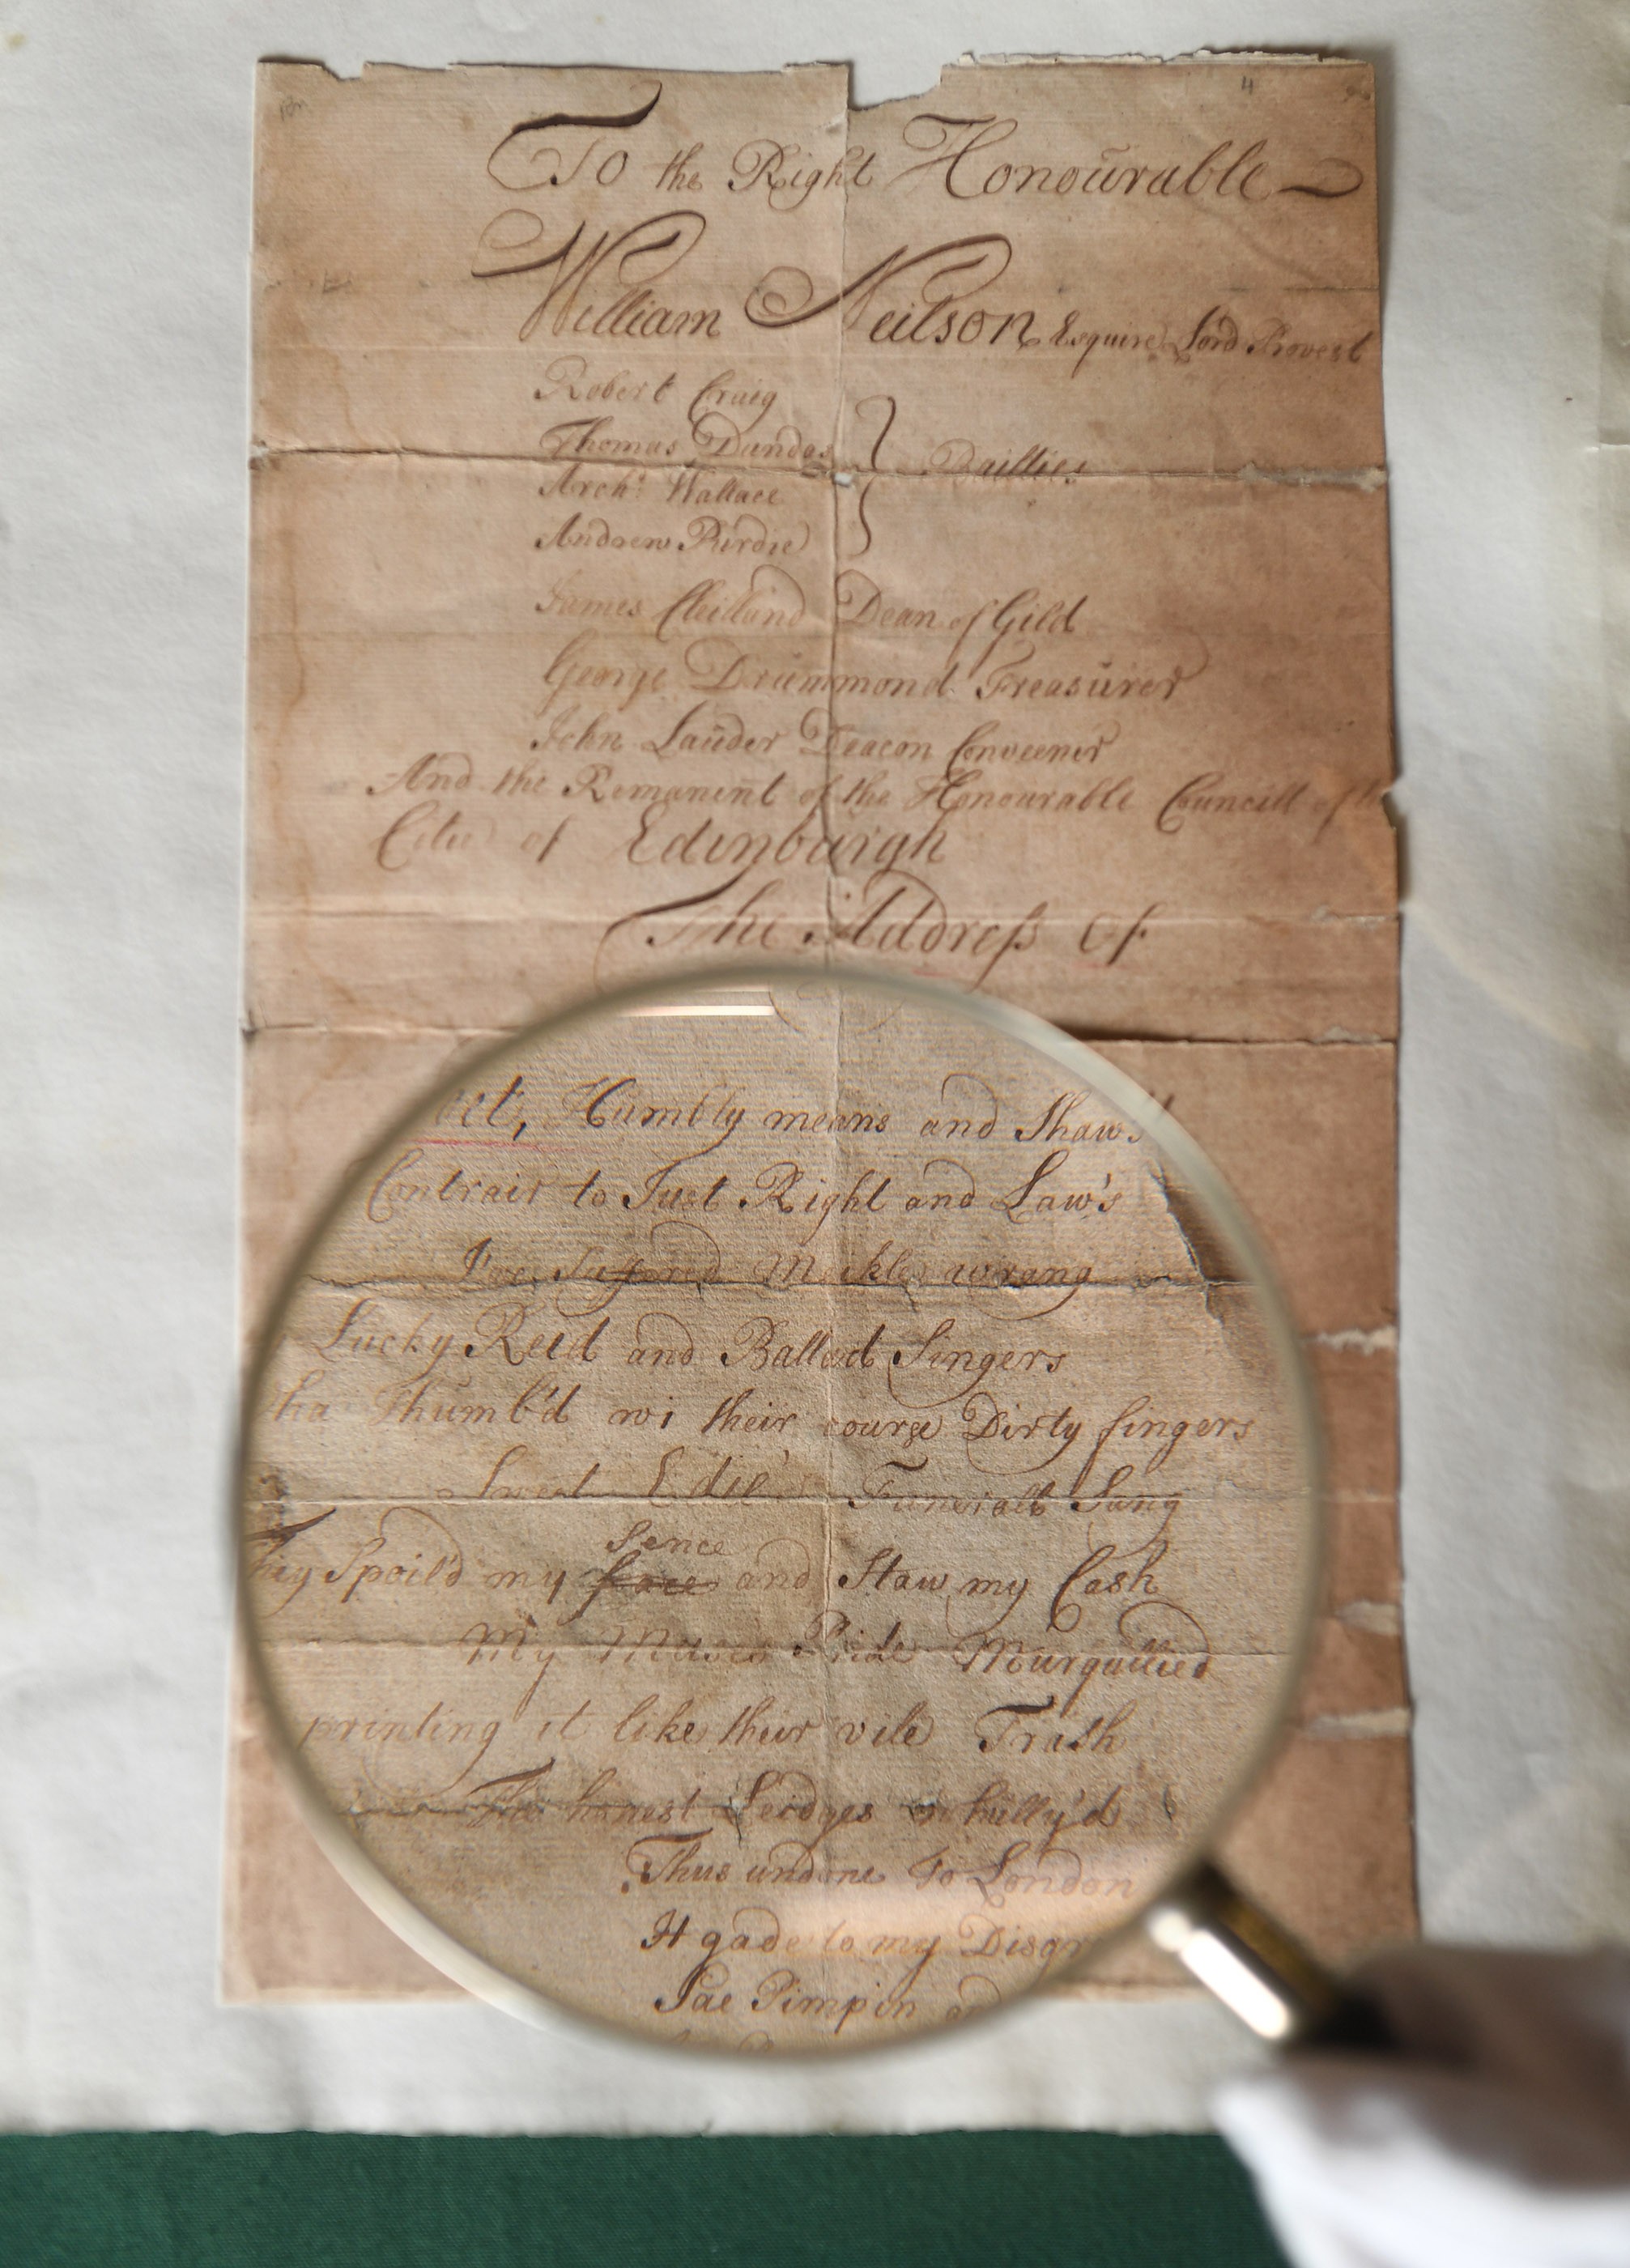 4
To the Right Honourable
William Neilson Esquire Lord Provest
Robert Craig
Thomas Dundas
Baillies
Archd: Wallace
Andrew Purdie
James Cleiland Dean of Gild
George Drummond Treasurer
John Lauder Deacon Conveener
And the Remanent of the Honourable Councill of the
City of Edinburgh
The Address of
Humbly means and Shaws
Contrair to Just Right and Law's
I've Suffered Meikle wrang
Lucky Reid and Ballad Singers
Thumb'd wi their course Dirty fingers
Sweet Edie's Funerall Sang
Sence
They Spoil'd my face and Staw my Cash
My Muses Pride Murgullied
printing it like their vile Trash
The honest Leidges whully'd
Thus undone To London
It gade to my
Sae Pimpin